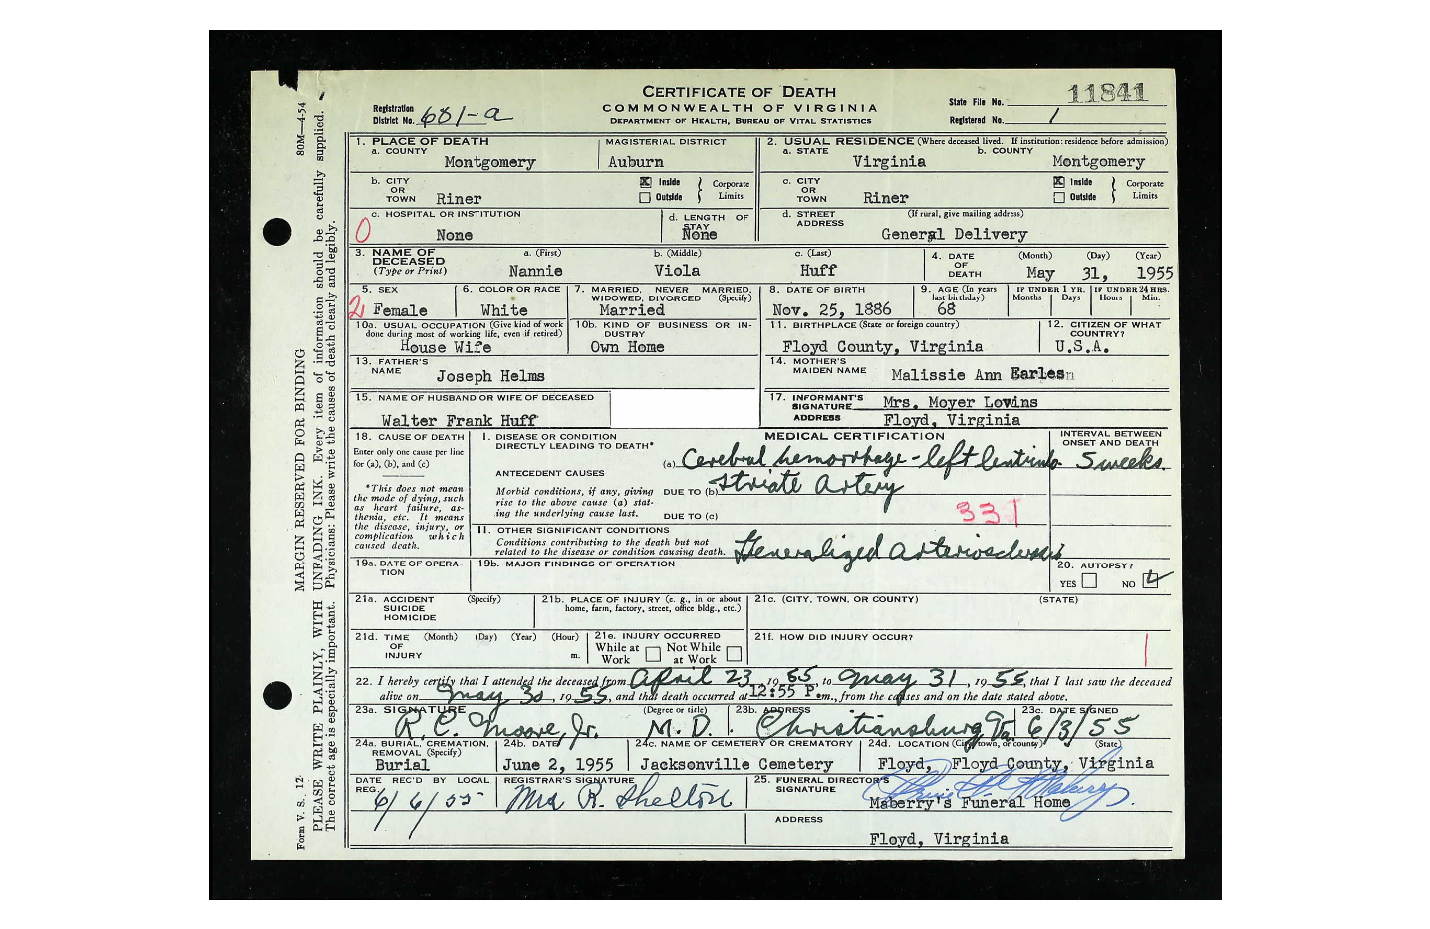 CERTIFICATE OF DEATH
COMMONWEALTH OF VIRGINIA
DEPARTMENT OF HEALTH, BUREAU OF VITAL STATISTICS
Registration District No. 681-a
State File No. 11841
Registered No. 1
80M—4-54
MARGIN RESERVED FOR BINDING
PLEASE WRITE PLAINLY, WITH UNFADING INK. Every item of information should be carefully supplied.
The correct age is especially important. Physicians: Please write the causes of death clearly and legibly.
Form V. S. 12
1. PLACE OF DEATH
a. COUNTY Montgomery
MAGISTERIAL DISTRICT Auburn
2. USUAL RESIDENCE (Where deceased lived. If institution: residence before admission)
a. STATE Virginia
b. COUNTY Montgomery
b. CITY OR TOWN Riner
X Inside Outside Corporate Limits
c. CITY OR TOWN Riner
X Inside Outside Corporate Limits
0
c. HOSPITAL OR INSTITUTION None
d. LENGTH OF STAY None
d. STREET ADDRESS (If rural, give mailing address) General Delivery
3. NAME OF DECEASED (Type or Print)
a. (First) Nannie
b. (Middle) Viola
c. (Last) Huff
4. DATE OF DEATH (Month) (Day) (Year) May 31, 1955
2
5. SEX Female
6. COLOR OR RACE White
7. MARRIED, NEVER MARRIED, WIDOWED, DIVORCED (Specify) Married
8. DATE OF BIRTH Nov. 25, 1886
9. AGE (In years last birthday) 68
IF UNDER 1 YR. Months Days
IF UNDER 24 HRS. Hours Min.
10a. USUAL OCCUPATION (Give kind of work done during most of working life, even if retired) House Wife
10b. KIND OF BUSINESS OR INDUSTRY Own Home
11. BIRTHPLACE (State or foreign country) Floyd County, Virginia
12. CITIZEN OF WHAT COUNTRY? U.S.A.
13. FATHER'S NAME Joseph Helms
14. MOTHER'S MAIDEN NAME Malissie Ann Earles
15. NAME OF HUSBAND OR WIFE OF DECEASED Walter Frank Huff
17. INFORMANT'S SIGNATURE Mrs. Moyer Lovins
ADDRESS Floyd, Virginia
18. CAUSE OF DEATH
Enter only one cause per line for (a), (b), and (c)
*This does not mean the mode of dying, such as heart failure, asthenia, etc. It means the disease, injury, or complication which caused death.
MEDICAL CERTIFICATION
INTERVAL BETWEEN ONSET AND DEATH
I. DISEASE OR CONDITION DIRECTLY LEADING TO DEATH*
(a) Cerebral hemorrhage - left lenticulo- 5 weeks
ANTECEDENT CAUSES
Morbid conditions, if any, giving rise to the above cause (a) stating the underlying cause last.
DUE TO (b) striate artery
DUE TO (c)
331
II. OTHER SIGNIFICANT CONDITIONS
Conditions contributing to the death but not related to the disease or condition causing death.
Generalized arteriosclerosis
19a. DATE OF OPERATION
19b. MAJOR FINDINGS OF OPERATION
20. AUTOPSY?
YES NO
21a. ACCIDENT SUICIDE HOMICIDE (Specify)
21b. PLACE OF INJURY (e. g., in or about home, farm, factory, street, office bldg., etc.)
21c. (CITY, TOWN, OR COUNTY) (STATE)
21d. TIME OF INJURY (Month) (Day) (Year) (Hour) m.
21e. INJURY OCCURRED
While at Work Not While at Work
21f. HOW DID INJURY OCCUR?
22. I hereby certify that I attended the deceased from April 23, 1955, to May 31, 1955, that I last saw the deceased
alive on May 30, 1955, and that death occurred at 12:55 P.m., from the causes and on the date stated above.
23a. SIGNATURE (Degree or title) R. C. Moore, Jr. M. D.
23b. ADDRESS Christiansburg, Va.
23c. DATE SIGNED 6/3/55
24a. BURIAL, CREMATION, REMOVAL (Specify) Burial
24b. DATE June 2, 1955
24c. NAME OF CEMETERY OR CREMATORY Jacksonville Cemetery
24d. LOCATION (City, town, or county) (State) Floyd, Floyd County, Virginia
DATE REC'D BY LOCAL REG. 6/6/55
REGISTRAR'S SIGNATURE Mrs R. Shelton
25. FUNERAL DIRECTOR'S SIGNATURE
Maberry's Funeral Home
ADDRESS
Floyd, Virginia